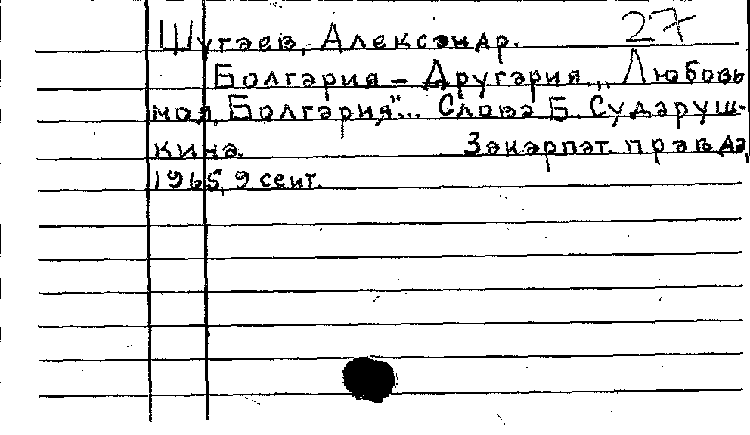 Шугаев, Александр. 27
Болгария – Другария. „Любовь
моя, Болгария"... Слова Б. Сударуш-
кина. Закарпат. правда,
1965, 9 сент.